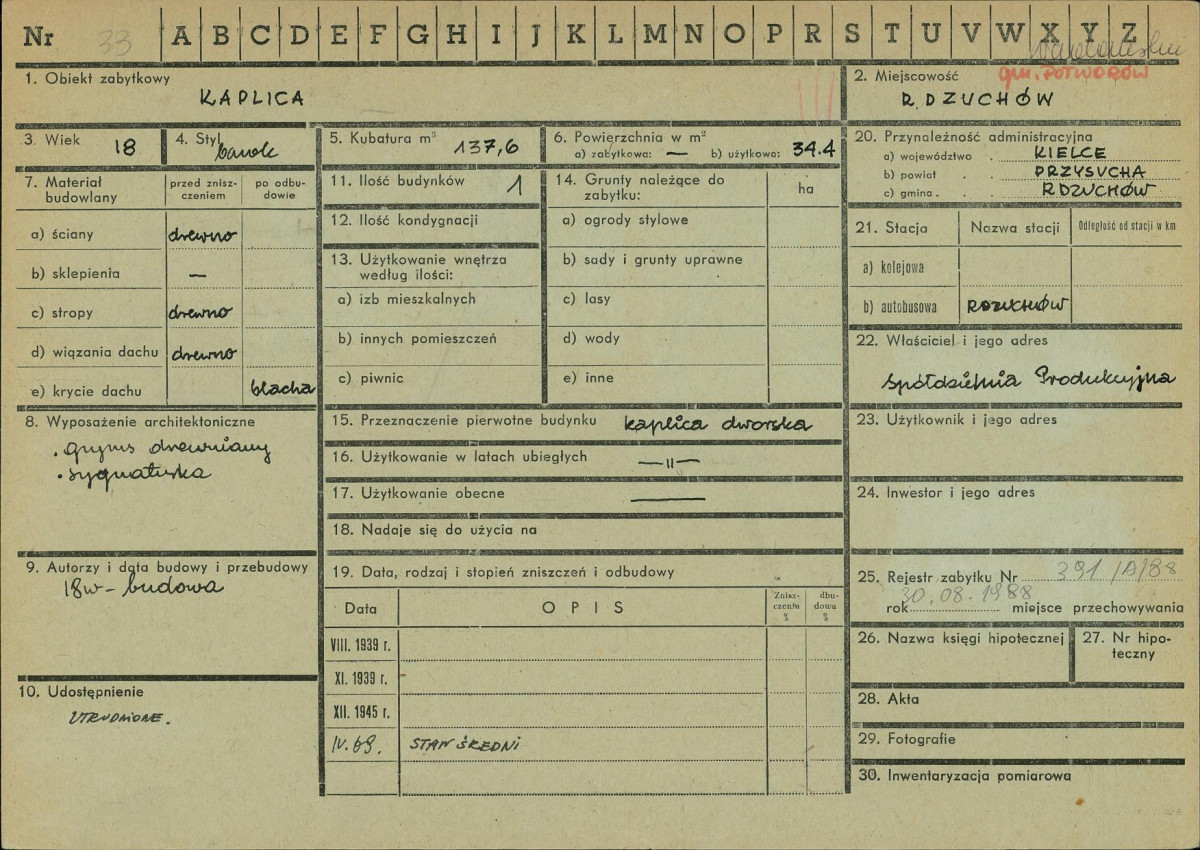 Nr 33 A B C D E F G H I J K L M N O P R S T U V W X Y Z
gm. POTWORÓW
1. Obiekt zabytkowy
KAPLICA
2. Miejscowość
RDZUCHÓW
3. Wiek 18
4. Styl barok
5. Kubatura m³ 137,6
6. Powierzchnia w m²
a) zabytkowa: — b) użytkowa: 34.4
20. Przynależność administracyjna
a) województwo . KIELCE
b) powiat . . PRZYSUCHA
c) gmina . . RDZUCHÓW
7. Materiał budowlany
przed znisz-
czeniem
po odbu-
dowie
a) ściany drewno
b) sklepienia —
c) stropy drewno
d) wiązania dachu drewno
e) krycie dachu blacha
8. Wyposażenie architektoniczne
. gzyms drewniany
. sygnaturka
9. Autorzy i data budowy i przebudowy
18w – budowa
10. Udostępnienie
UTRUDNIONE.
11. Ilość budynków 1
12. Ilość kondygnacji
13. Użytkowanie wnętrza
według ilości:
a) izb mieszkalnych
b) innych pomieszczeń
c) piwnic
14. Grunty należące do
zabytku:
ha
a) ogrody stylowe
b) sady i grunty uprawne
c) lasy
d) wody
e) inne
15. Przeznaczenie pierwotne budynku kaplica dworska
16. Użytkowanie w latach ubiegłych —"—
17. Użytkowanie obecne —
18. Nadaje się do użycia na
19. Data, rodzaj i stopień zniszczeń i odbudowy
Data OPIS
Znisz-
czenia
%
dbu-
dowa
%
VIII. 1939 r.
XI. 1939 r.
XII. 1945 r.
IV. 69. STAN ŚREDNI
21. Stacja Nazwa stacji Odległość od stacji w km
a) kolejowa
b) autobusowa RDZUCHÓW
22. Właściciel i jego adres
Spółdzielnia Produkcyjna
23. Użytkownik i jego adres
24. Inwestor i jego adres
25. Rejestr zabytku Nr 391/A/88
rok 30.08.1988 miejsce przechowywania
26. Nazwa księgi hipotecznej
27. Nr hipo-
teczny
28. Akta
29. Fotografie
30. Inwentaryzacja pomiarowa